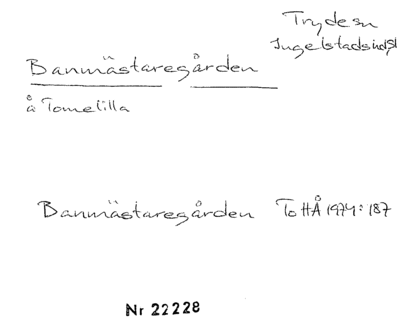 Tryde sn
Ingelstads hd
Banmästaregården
å Tomelilla
Banmästaregården ToHÅ 1974:187
Nr 22228